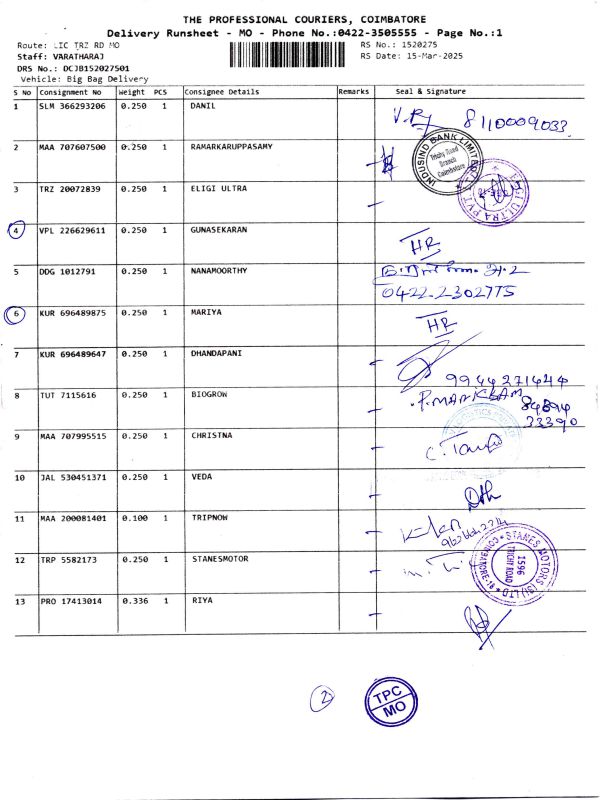 THE PROFESSIONAL COURIERS, COIMBATORE
Delivery Runsheet - MO - Phone No.:0422-3505555 - Page No.:1
Route: LIC TRZ RD MO RS No.: 1520275
Staff: VARATHARAJ RS Date: 15-Mar-2025
DRS No.: DCJB152027501
Vehicle: Big Bag Delivery
S No Consignment No Weight PCS Consignee Details Remarks Seal & Signature
1 SLM 366293206 0.250 1 DANIL 8110009033
2 MAA 707607500 0.250 1 RAMARKARUPPASAMY
INDUSIND BANK LIMITED
Trichy Road
Branch
Coimbatore
3 TRZ 20072839 0.250 1 ELIGI ULTRA
ELGI ULTRA PVT
4 VPL 226629611 0.250 1 GUNASEKARAN HR
5 DDG 1012791 0.250 1 NANAMOORTHY
0422-2302775
6 KUR 696489875 0.250 1 MARIYA HR
7 KUR 696489647 0.250 1 DHANDAPANI
9944271444
8 TUT 7115616 0.250 1 BIOGROW P.MANICKAM 84894
33390
9 MAA 707995515 0.250 1 CHRISTNA
10 JAL 530451371 0.250 1 VEDA
11 MAA 200081401 0.100 1 TRIPNOW
12 TRP 5582173 0.250 1 STANESMOTOR
STANES MOTORS (SI) LTD
COIMBATORE-18
1596
TRICHY ROAD
13 PRO 17413014 0.336 1 RIYA
2
TPC
MO